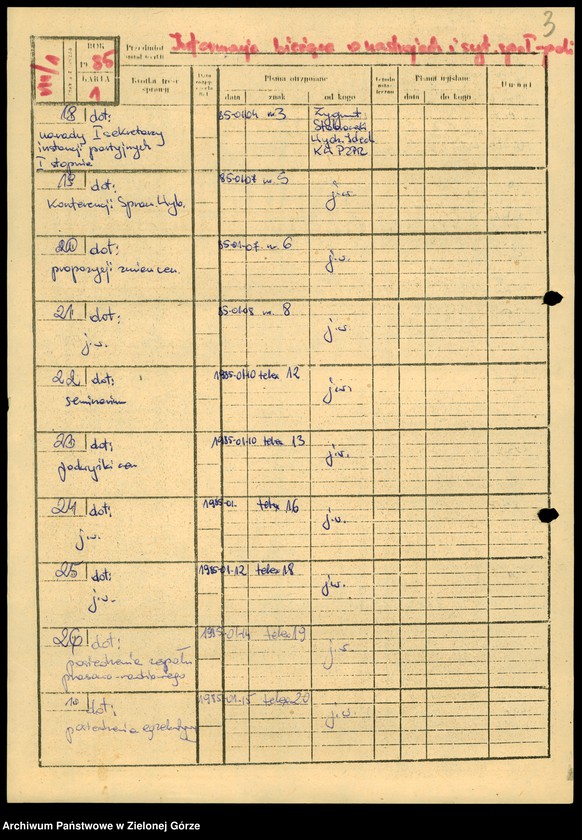 3
VIII/1
ROK
1985
KARTA
1
Przedmiot
Informacja bieżąca o nastrojach i syt. społ-poli
Krótka treść sprawy
Pisma otrzymane
data znak od kogo
Pisma wysłane
data do kogo
Uwagi
18 dot: 85-01-04 nr 3 Zygmunt
narady I sekretarzy
instancji partyjnych
I stopnia
KW PZPR
19 dot: 85-01-07 nr 5 j.w.
Konferencji Spraw. Wyb.
20 dot: 85-01-07 nr 6 j.w.
propozycji zmian cen.
21 dot: 85-01-08 nr 8 j.w.
j.w.
22 dot: 1985-01-10 telex 12 j.w.
seminarium
23 dot: 1985-01-10 telex 13 j.w.
podwyżki cen
24 dot: 1985-01- telex 16 j.w.
j.w.
25 dot: 1985-01-12 telex 18 j.w.
j.w.
26 dot: 1985-01-14 telex 19 j.w.
posiedzenia zespołu
prasowo-radiowego
dot: 1985-01-15 telex 20 j.w.
posiedzenia egzekutywy
Archiwum Państwowe w Zielonej Górze